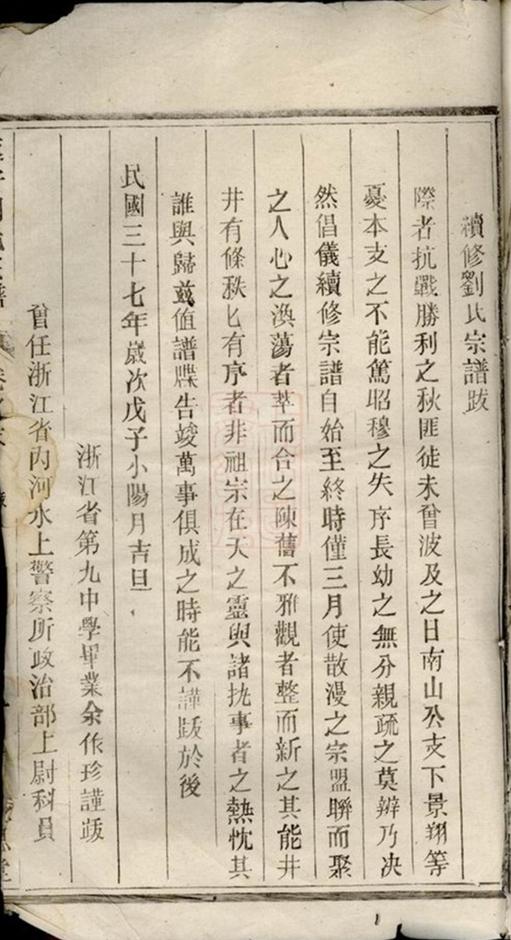 續修劉氏宗譜跋
際者抗戰勝利之秋匪徒未曾波及之日南山公支下景翔等
憂本支之不能篤昭穆之失序長幼之無分親疏之莫辨乃决
然倡儀續修宗譜自始至終時僅三月使散漫之宗盟聯而聚
之人心之渙蕩者萃而合之陳舊不雅觀者整而新之其能井
井有條秩匕有序者非祖宗在天之靈與諸执事者之熱忱其
誰與歸兹值譜牒告竣萬事俱成之時能不謹跋於後
民國三十七年歲次戊子小陽月吉旦
浙江省第九中學畢業余作珍謹跋
曾任浙江省內河水上警察所政治部上尉科員